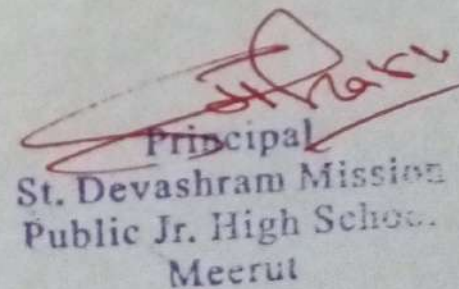 Principal
St. Devashram Mission
Public Jr. High School
Meerut